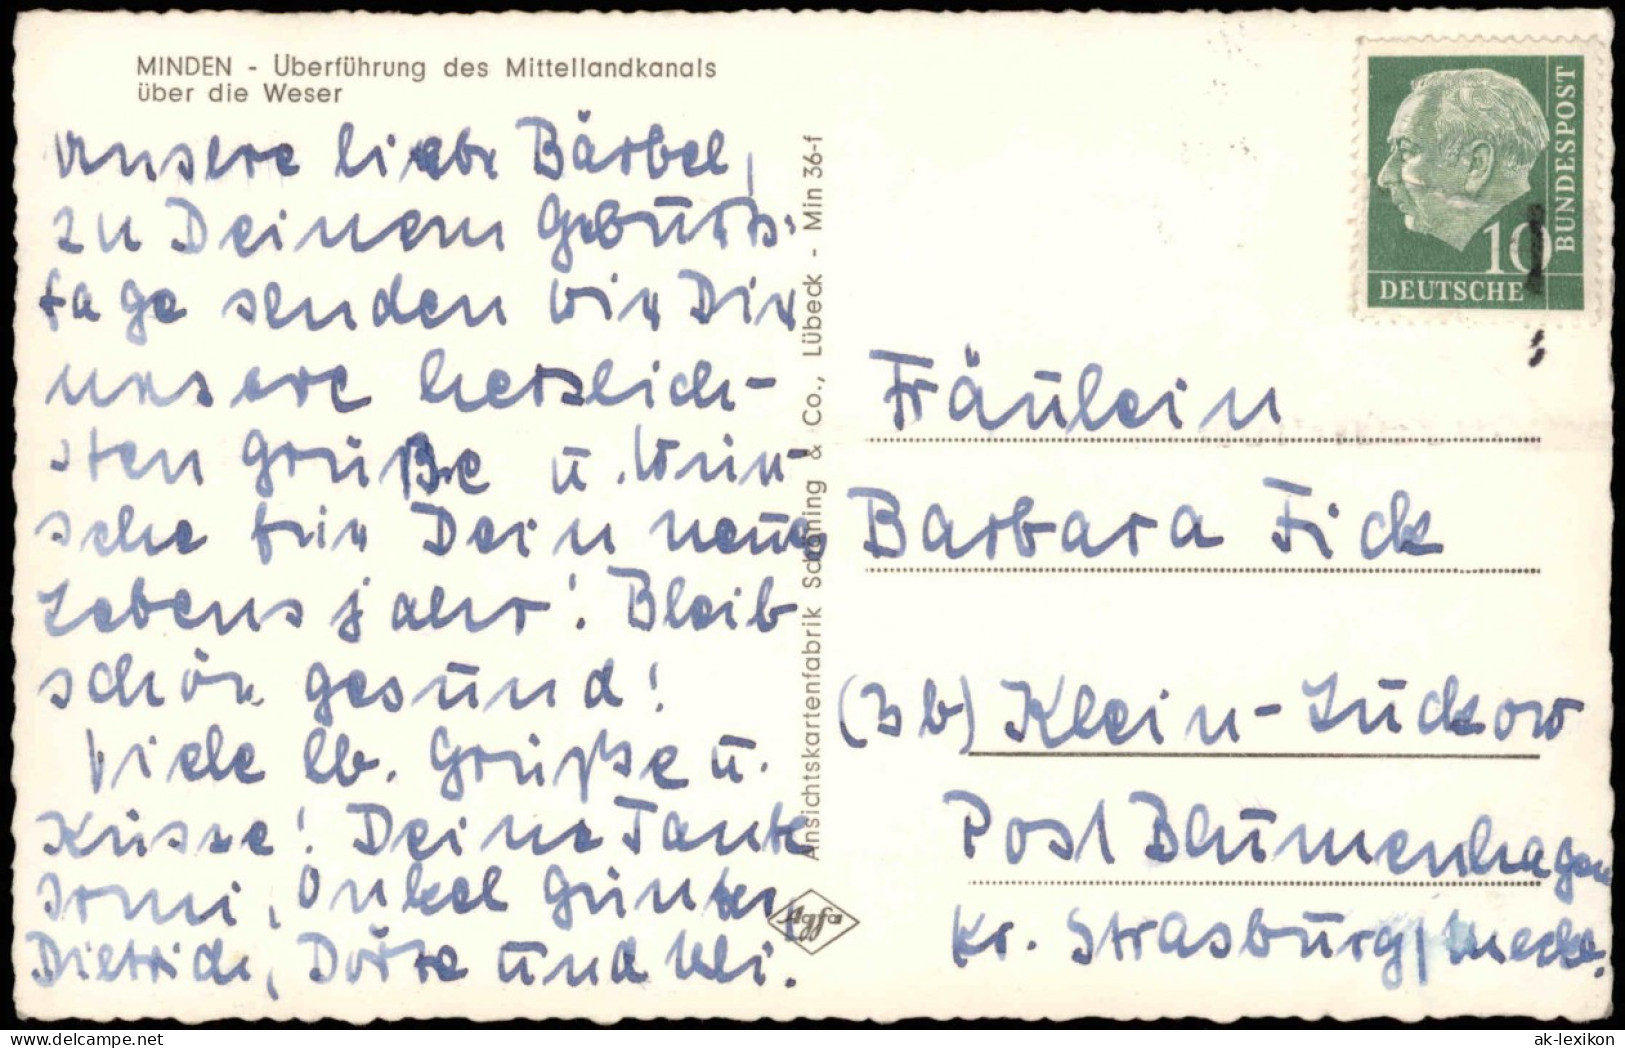 MINDEN - Überführung des Mittellandkanals
über die Weser
Unsere liebe Bärbel,
zu Deinem Geburts-
tage senden wir Dir
unsere herzlich-
sten Grüße u. Wün-
sche für Dein neues
Lebensjahr! Bleib
schön gesund!
Viele lb. Grüße u.
Küsse! Deine Tante
Irmi, Onkel Günter,
Dietrich, Dörte und Uli.
Ansichtskartenfabrik Schöning & Co., Lübeck - Min 36-f
Agfa
10
DEUTSCHE
BUNDESPOST
Fräulein
Barbara Fick
(3b) Klein-Luckow
Post Blumenhagen
Kr. Strasburg/Meckl.
© ak-ansichtskarten.de
ak-lexikon